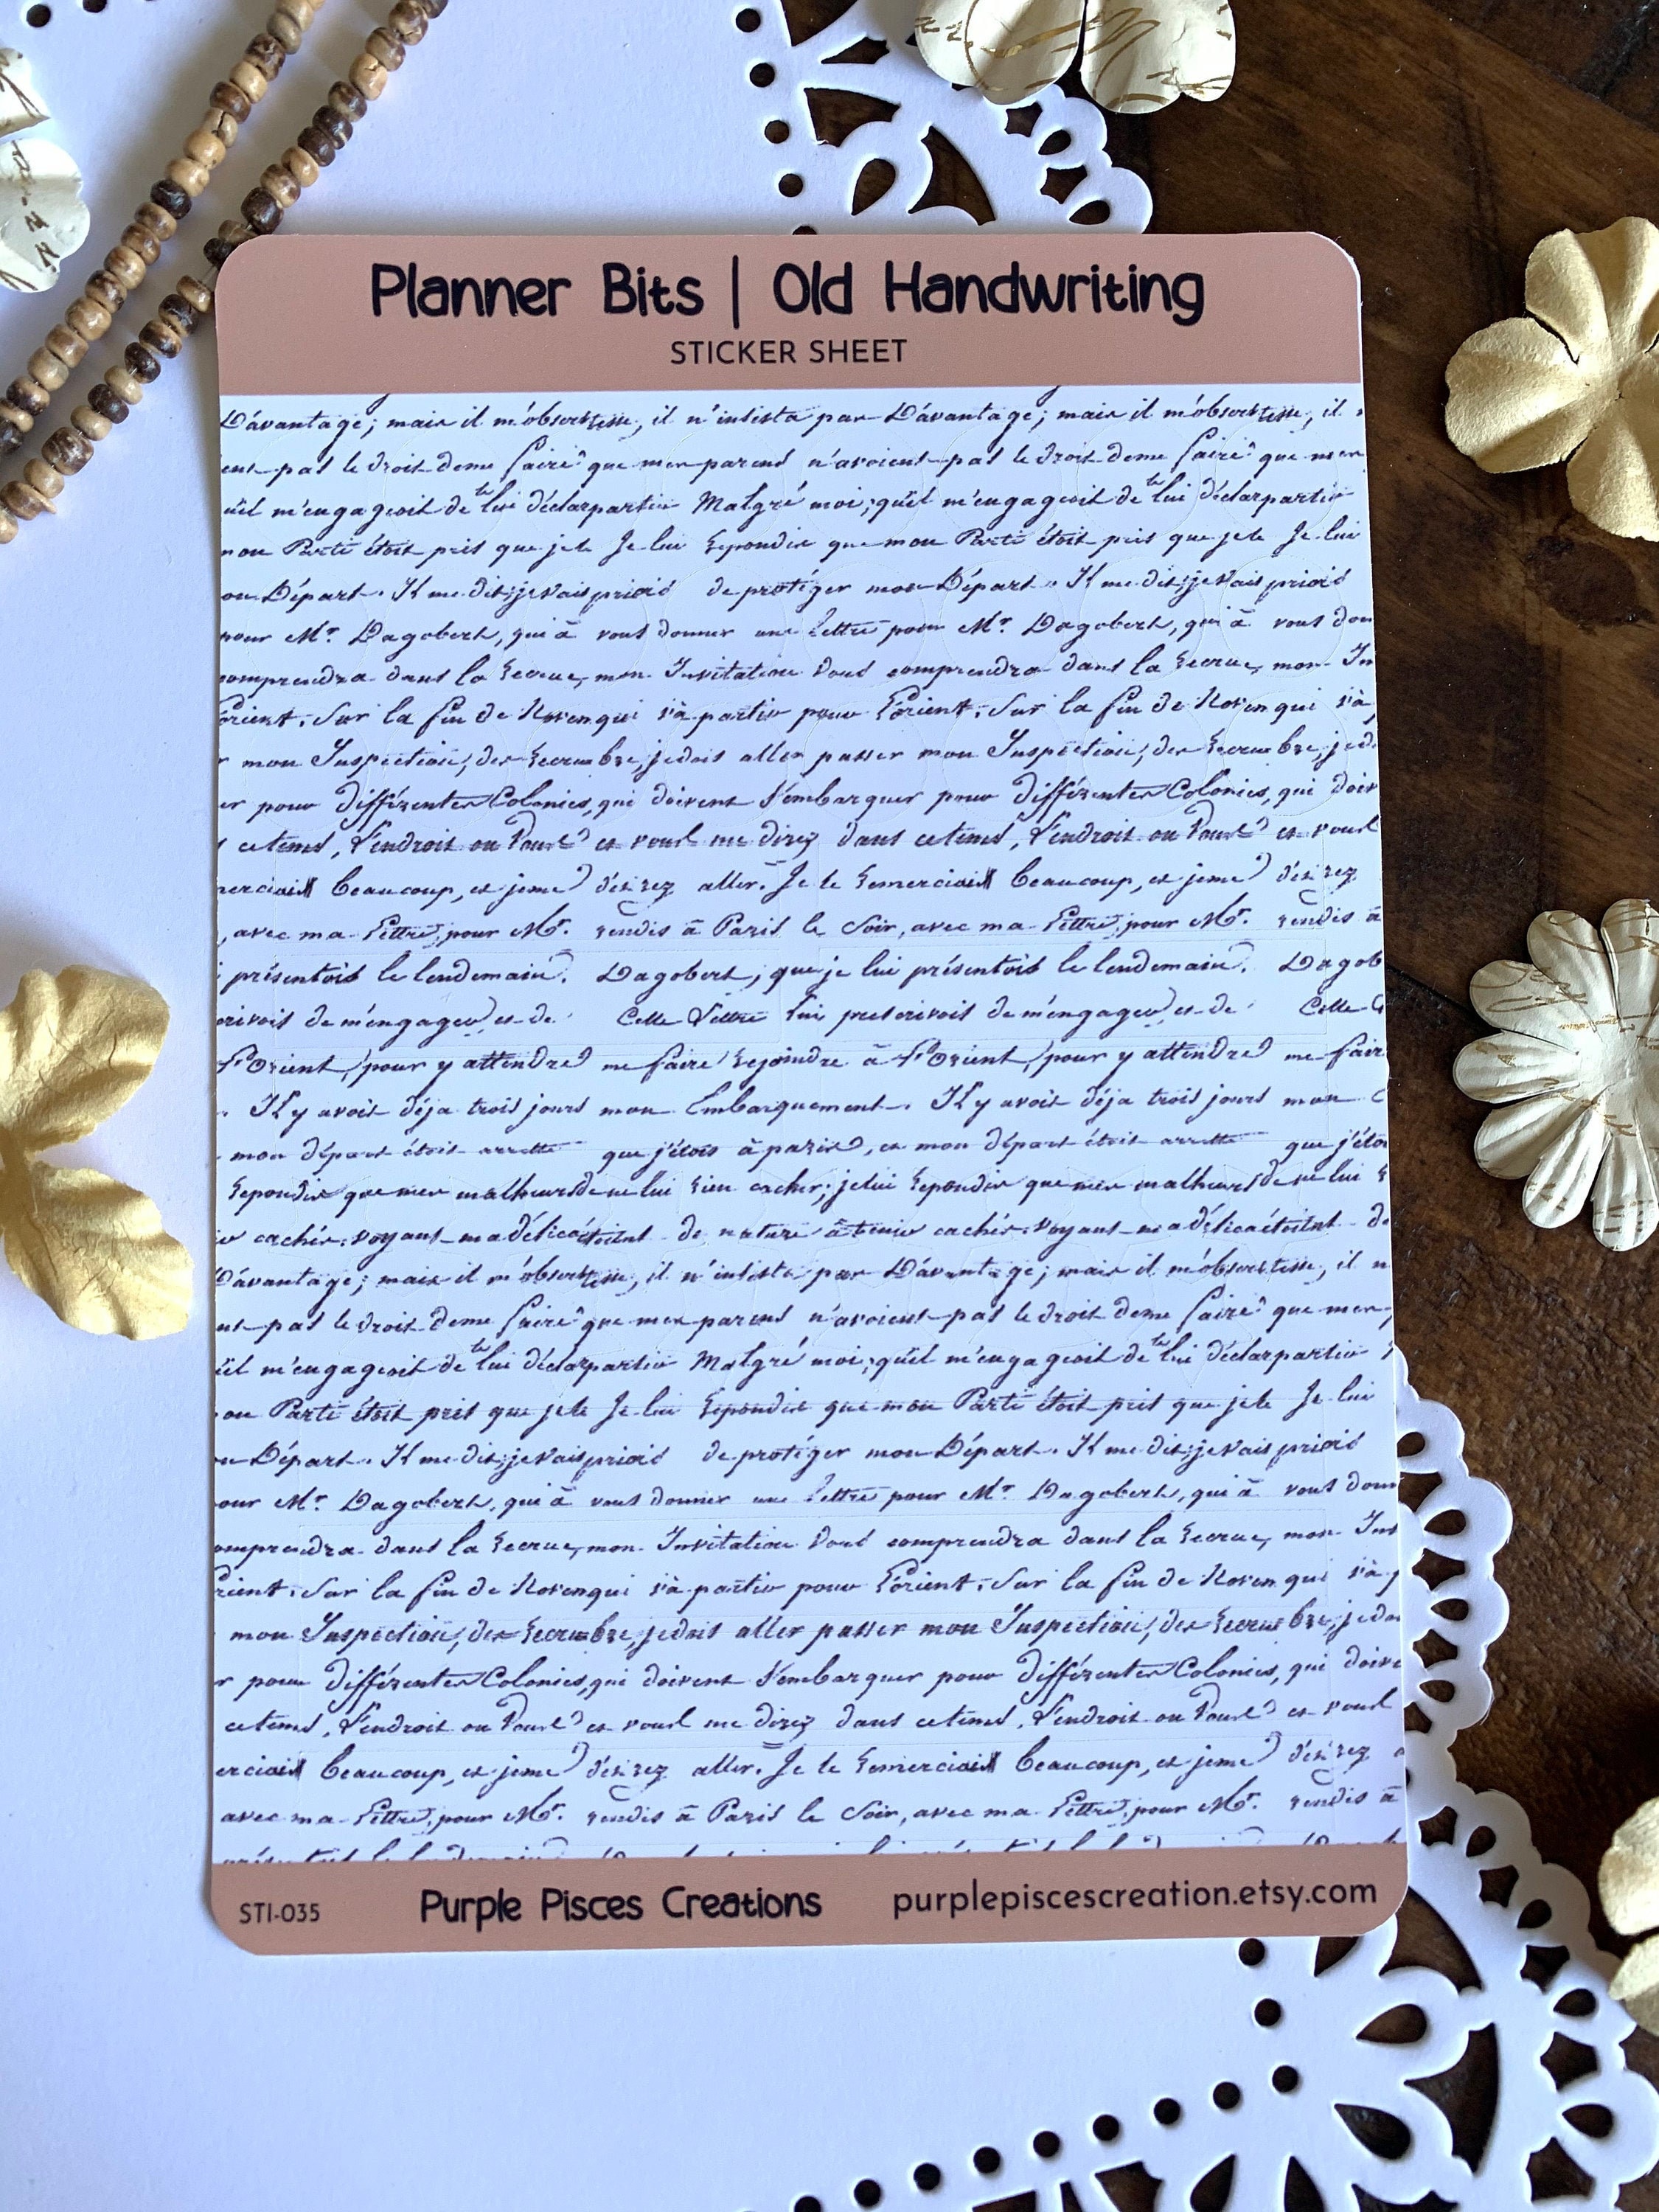 Planner Bits | Old Handwriting
STICKER SHEET
D'avantage; mais il m'observ il n'insista pas D'avantage; mais il m'observ il
pas le droit deme faire que mes parens n'avoient pas le droit deme faire que mes
m'engageoit de lui déclar partir Malgré moi; qu'il m'engageoit de lui déclar partir
mon Parti étoit pris que je le Je lui repondis que mon Parti étoit pris que je le Je lui
Départ. Il me dit; je vais de protéger mon Départ. Il me dit; je vais
pour Mr. Dagobert, qui à vous donner une lettre pour Mr. Dagobert, qui à vous don
comprendra dans la recrue, mon Invitation Vous comprendra dans la recrue, mon In
Sur la fin de Noven qui và partir pour L'orient. Sur la fin de Noven qui và
mon Inspection, des recrue je dois aller passer mon Inspection, des recrue
pour différentes Colonies, qui doivent s'embarquer pour différentes Colonies, qui doiv
cetems, L'endroit ou et vous me direz dans cetems, L'endroit ou et vous
beaucoup, et jeme désirez aller. Je le remerciais beaucoup, et jeme désirez
, avec ma Lettre, pour Mr. rendis à Paris le Soir, avec ma Lettre, pour Mr. rendis à
présentois le lendemain. Dagobert, que je lui présentois le lendemain. Dagob
de m'engager et de Cette Lettre lui prescrivois de m'engager et de Cette
L'Orient, pour y attendre me faire rejoindre à L'Orient, pour y attendre me fair
Il y avoit déja trois jours mon Embarquement. Il y avoit déja trois jours mon
mon départ étoit arretté que j'étois à paris, et mon départ étoit arretté que j'éto
repondis que mes malheurs de ne lui rien cacher; je lui repondis que mes malheurs de ne lui
cachér. voyant ma délica de nature à tenir cachér. voyant ma délica
D'avantage; mais il m'observ il n'insista pas D'avantage; mais il m'observ il
pas le droit deme faire que mes parens n'avoient pas le droit deme faire que mes
m'engageoit de lui déclar partir Malgré moi; qu'il m'engageoit de lui déclar partir
Parti étoit pris que je le Je lui repondis que mon Parti étoit pris que je le Je lui
Départ. Il me dit; je vais de protéger mon Départ. Il me dit; je vais
our Mr. Dagobert, qui à vous donner une lettre pour Mr. Dagobert, qui à vous donn
omprendra dans la recrue, mon Invitation Vous comprendra dans la recrue, mon
Sur la fin de Noven qui và partir pour L'orient. Sur la fin de Noven qui và
mon Inspection, des recrue je dois aller passer mon Inspection, des recrue
pour différentes Colonies, qui doivent s'embarquer pour différentes Colonies, qui doive
cetems, L'endroit ou et vous me direz dans cetems, L'endroit ou et vous
beaucoup, et jeme désirez aller. Je le remerciais beaucoup, et jeme désirez
avec ma Lettre, pour Mr. rendis à Paris le Soir, avec ma Lettre, pour Mr. rendis à
STI-035 Purple Pisces Creations purplepiscescreation.etsy.com